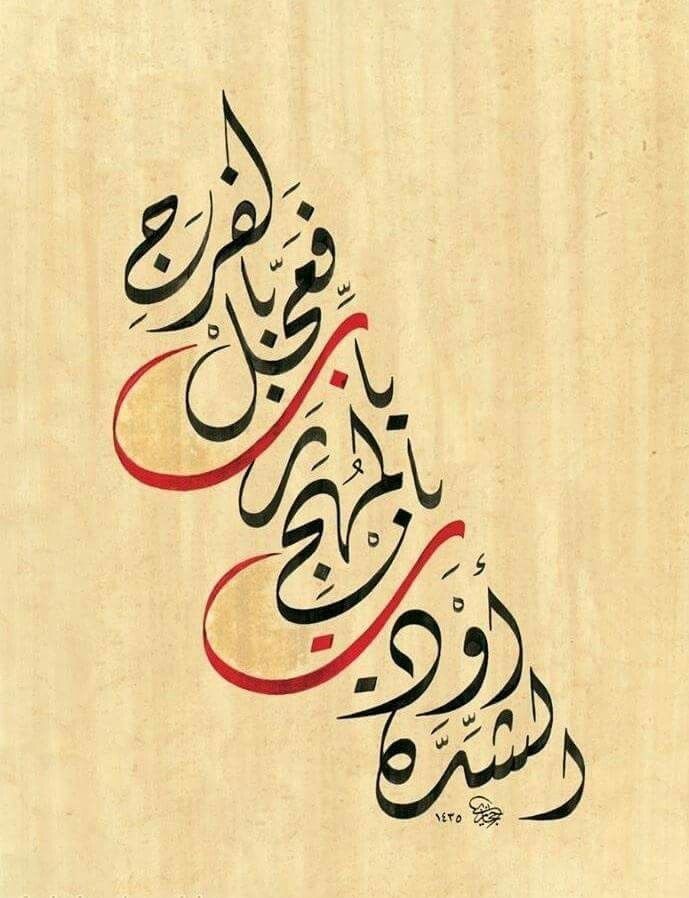 الشِّدَّة أَوْدَت
بالمُهَجِ
يا رَب
فعَجِّل بالفَرَجِ
١٤٣٥